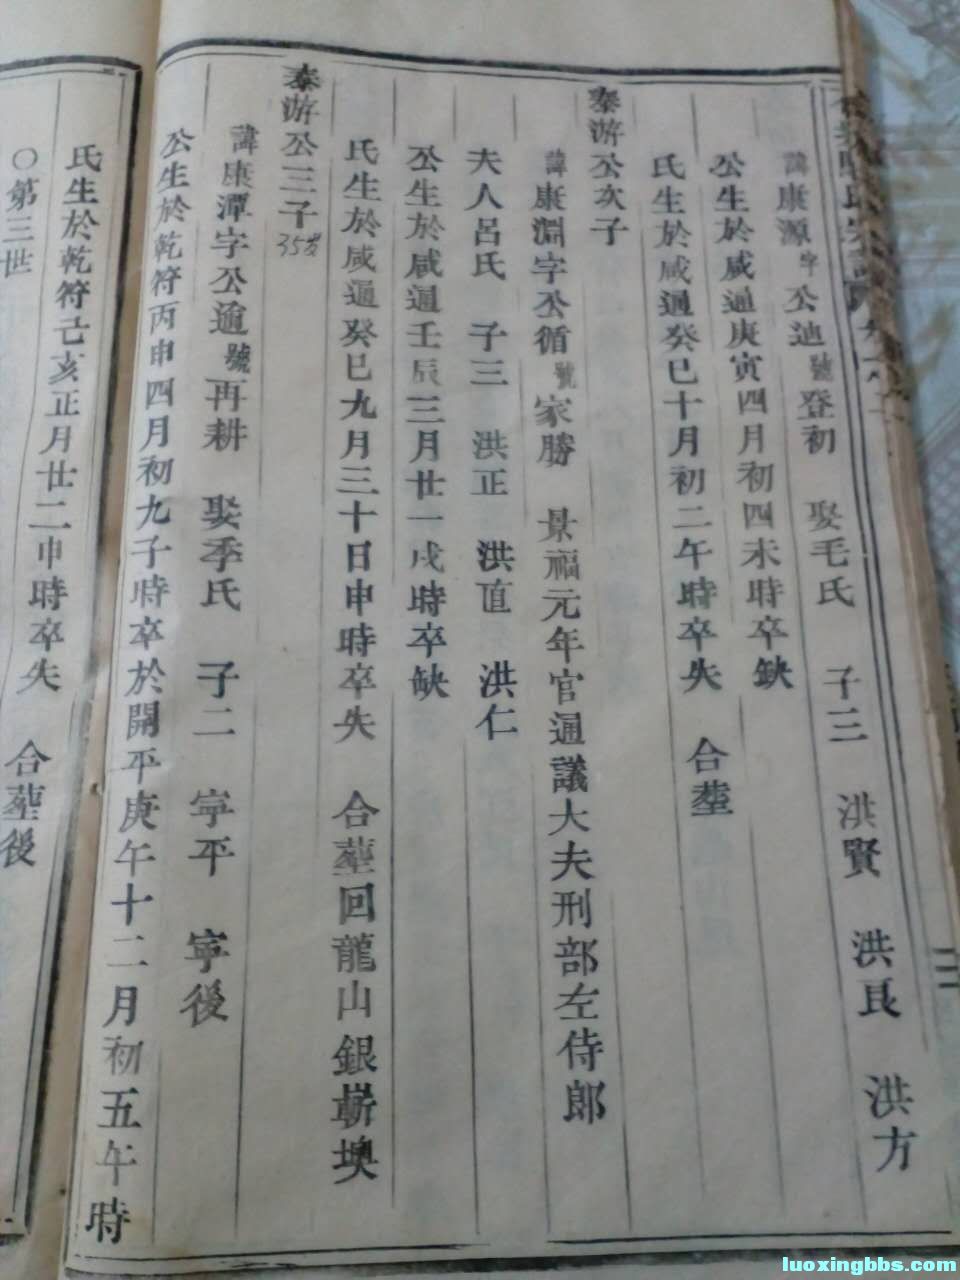 諱康源字公迪號登初 娶毛氏 子三 洪賢 洪良 洪方
公生於咸通庚寅四月初四未時卒缺
氏生於咸通癸巳十月初二午時卒失 合塟
泰游公次子
諱康淵字公循號家勝 景福元年官通議大夫刑部左侍郎
夫人呂氏 子三 洪正 洪直 洪仁
公生於咸通壬辰三月廿一戌時卒缺
氏生於咸通癸巳九月三十日申時卒失 合塟回龍山銀嶄墺
泰游公三子
35岁
諱康潭字公逾號再耕 娶季氏 子二 寜平 寜後
公生於乾符丙申四月初九子時卒於開平庚午十二月初五午時
氏生於乾符己亥正月廿二申時卒失 合塟後
○第三世
luoxingbbs.com